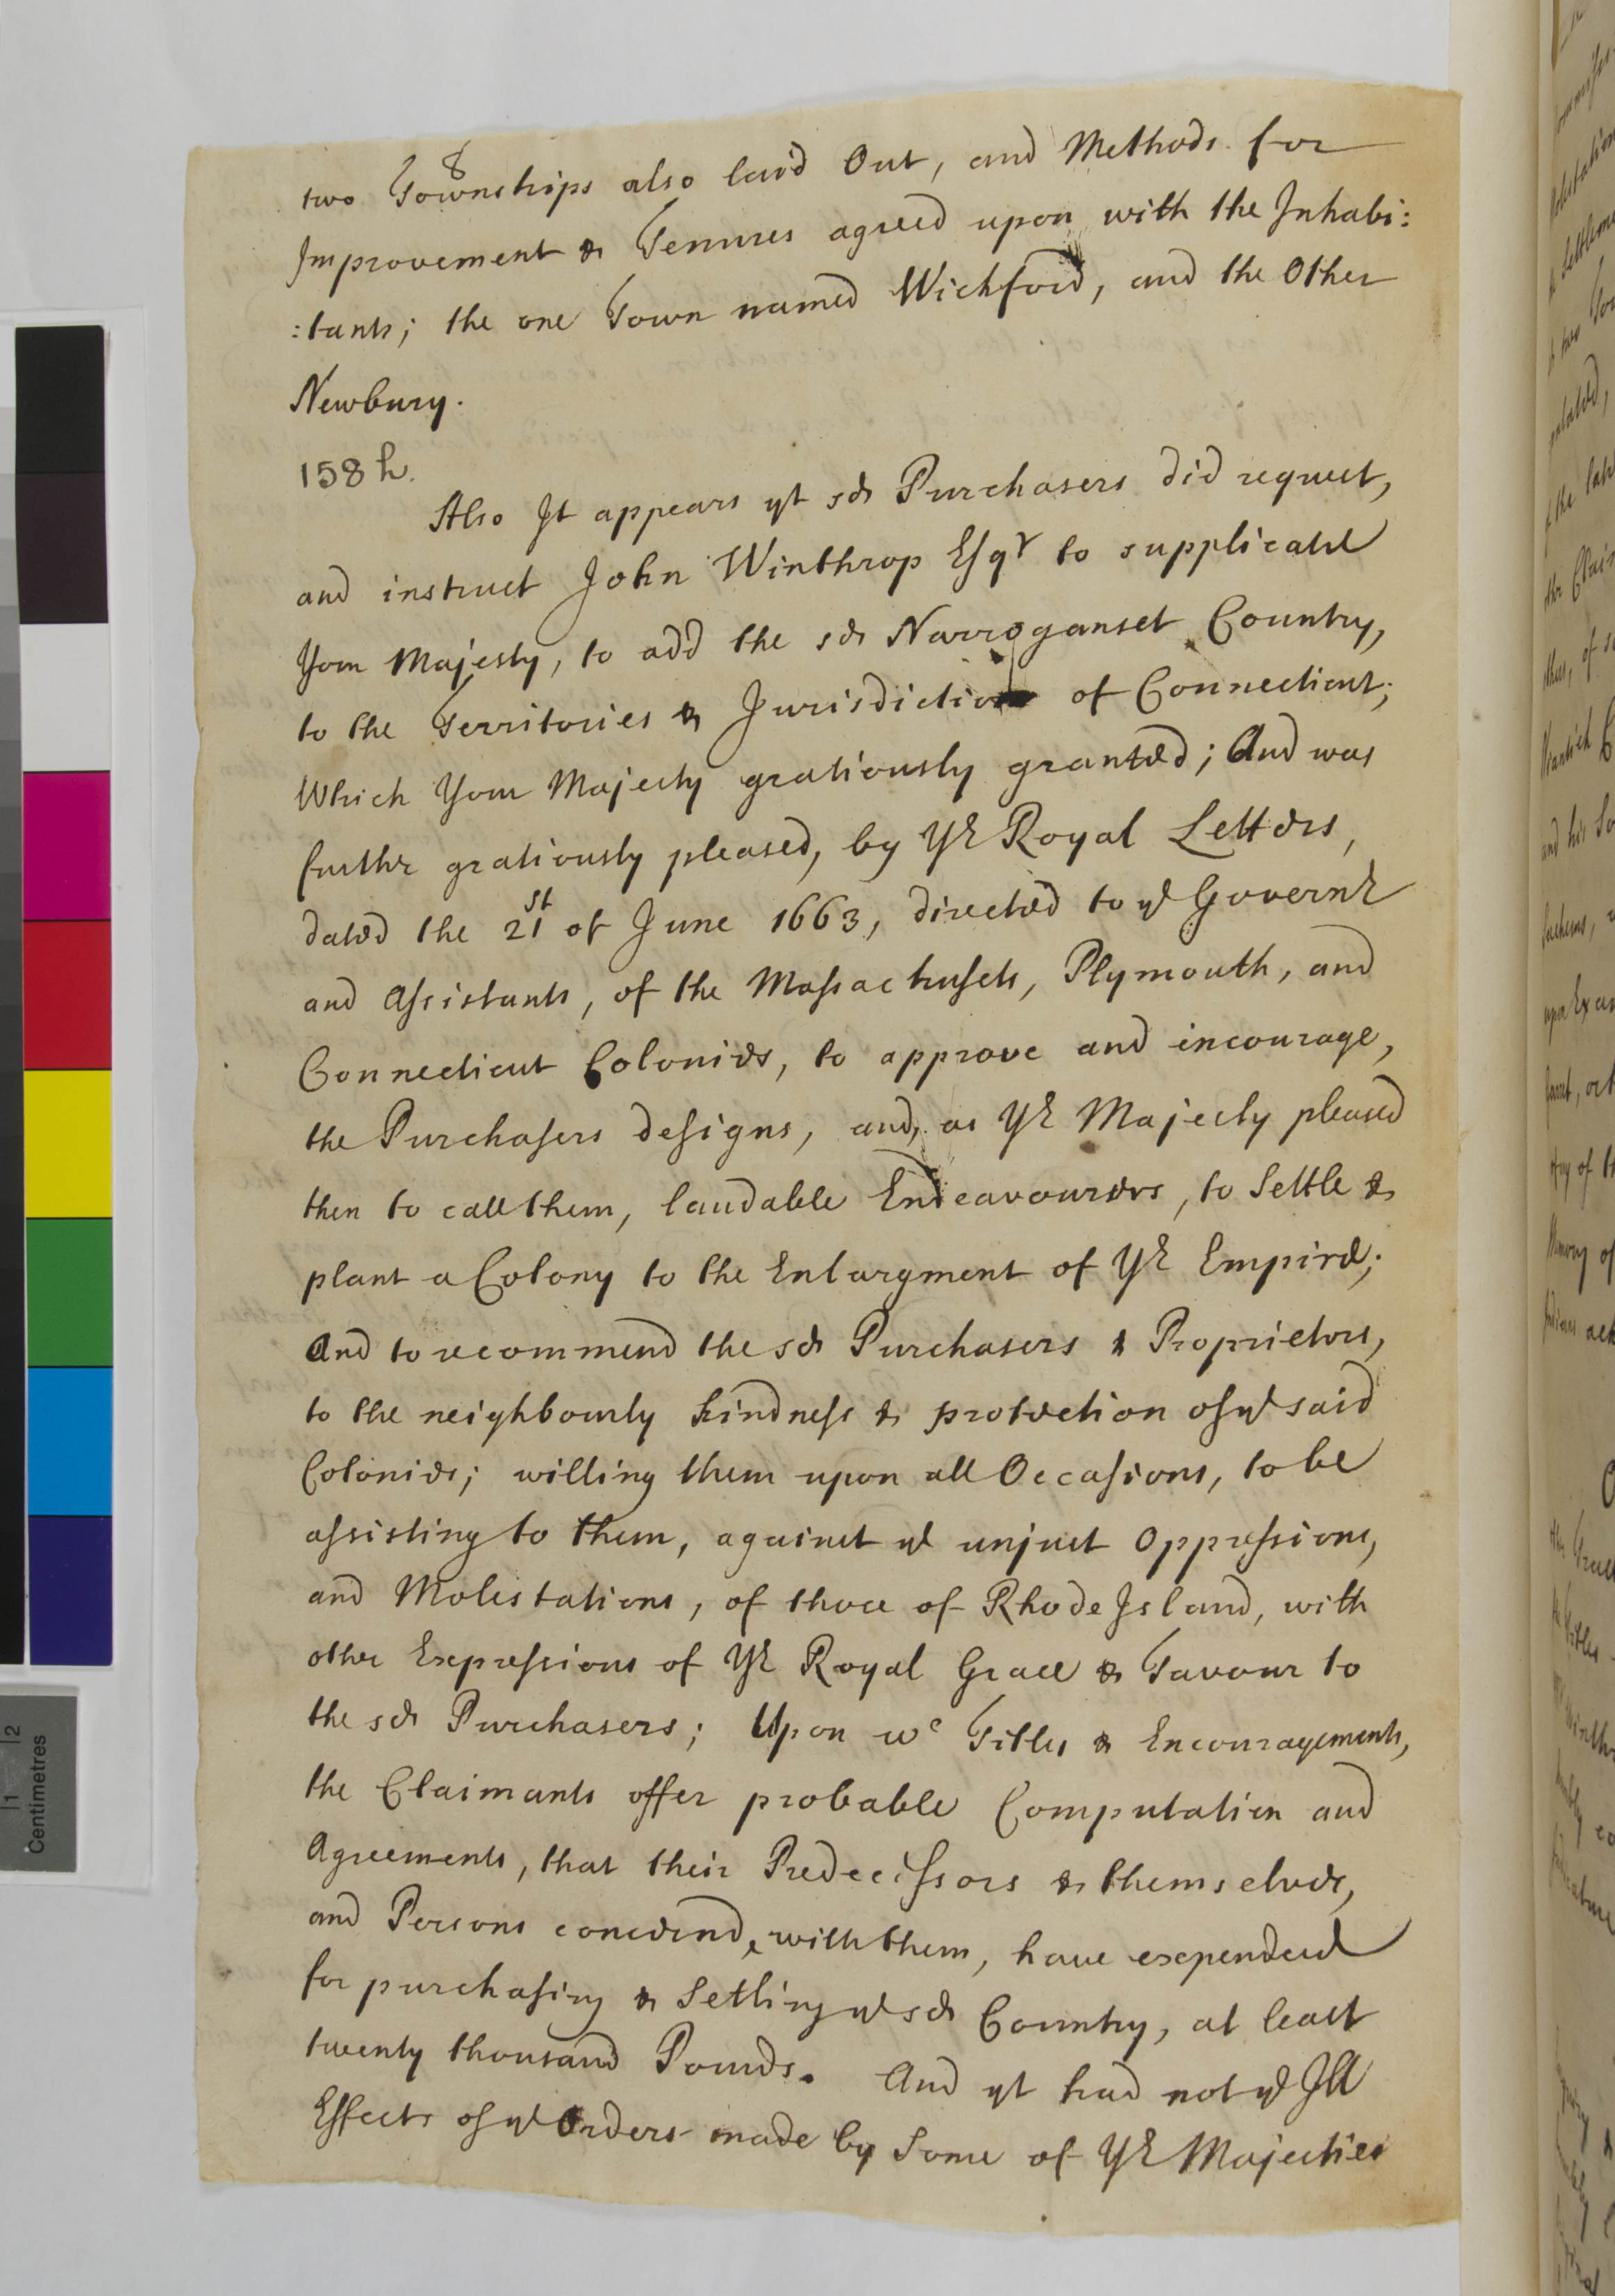 8
two Townships also laid Out, and Methods for
Improvement & Tenures agreed upon with the Inhabi:
:tants; the one Town named Wickford, and the Other
Newbury.
158 h.
Also It appears yt sd Purchasers did request,
and instruct John Winthrop Esqr to supplicate
Your Majesty, to add the sd Narroganset Country,
to the Territories & Jurisdiction of Connecticut;
Which Your Majesty gratiously granted; And was
further gratiously pleased, by Yr Royal Letters,
dated the 21st of June 1663, directed to ye Governr
and Assistants, of the Massachusets, Plymouth, and
Connecticut Colonies, to approve and incourage,
the Purchasers designs, and, as Yr Majesty pleased
then to call them, laudable Endeavourers, to Settle &
plant a Colony to the Enlargment of Yr Empire;
And to recommend the sd Purchasers & Proprietors,
to the neighbourly kindness & protection of ye said
Colonies; willing them upon all Occasions, to be
assisting to them, against ye unjust Oppressions,
and Molestations, of those of Rhode Island, with
other Expressions of Yr Royal Grace & Favour to
the sd Purchasers; Upon wc Titles & Encouragements,
the Claimants offer probable Computation and
Agreements, that their Predecessors & themselves,
and Persons concernd, with them, have expended
for purchasing & Setling ye sd Country, at least
twenty thousand Pounds. And yt had not ye Ill
Effects of ye Orders made by Some of Yr Majesties
1 2
Centimetres